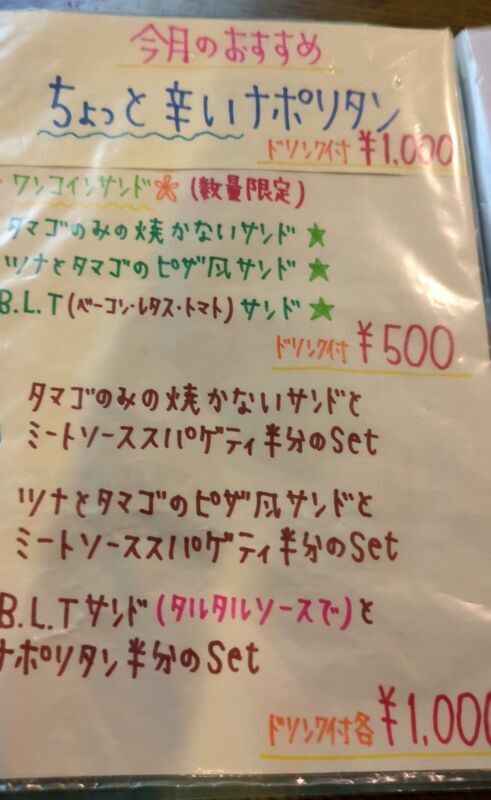 今月のおすすめ
ちょっと辛いナポリタン
ドリンク付 ¥1.000
ワンコインサンド (数量限定)
タマゴのみの焼かないサンド ★
ツナとタマゴのピザ風サンド ★
B.L.T(ベーコン・レタス・トマト) サンド ★
ドリンク付 ¥500
タマゴのみの焼かないサンドと
ミートソーススパゲティ半分のSet
ツナとタマゴのピザ風サンドと
ミートソーススパゲティ半分のSet
B.L.Tサンド(タルタルソースで)と
ナポリタン半分のSet
ドリンク付各 ¥1.000